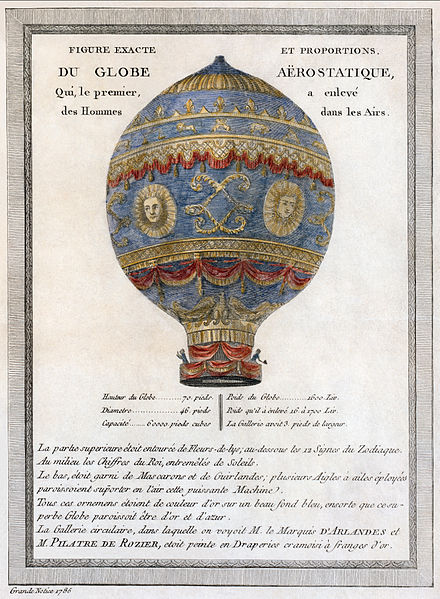 FIGURE EXACTE ET PROPORTIONS,
DU GLOBE AËROSTATIQUE,
Qui, le premier, a enlevé
des Hommes dans les Airs.
Hauteur du Globe..........70. pieds
Diametre..............46. pieds
Capacité......60000 pieds cubes
Poids du Globe..........1600 Liv.
Poids qu'il à énlevé 16 à 1700 Liv.
La Gallerie avoit 3. pieds de largeur.
La partie superieure étoit entourée de Fleurs-de-lys, au-dessous les 12 Signes du Zodiaque.
Au milieu les Chiffres du Roi, entremêlés de Soleils.
Le bas, étoit garni de Mascarons et de Guirlandes; plusieurs Aigles à ailes éployées
paroissoient supórter en l'air cette puissante Machine).
Tous ces ornemens étoient de couleur d'or sur un beau fond bleu, ensorte que ce su-
perbe Globe paroissoit être d'or et d'azur.
La Gallerie circulaire, dans laquelle on voyoit M. le Marquis D'ARLANDES et
M. PILATRE DE ROZIER, etoit peinte en Draperies cramoisi à franges d'or.
Grande Notice 1786